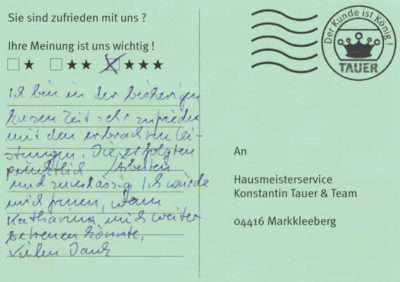 Sie sind zufrieden mit uns ?
Ihre Meinung ist uns wichtig !
★ ★★ ★★★
Ich bin in der bisherigen
kurzen Zeit sehr zufrieden
mit den erbrachten Lei-
stungen. Die erfolgten
pünktlich Arbeiten
und zuverlässig Ich würde
mich freuen, wenn
Katharina mich weiter
betreuen könnte,
Vielen Dank
Der Kunde ist König !
TAUER
An
Hausmeisterservice
Konstantin Tauer & Team
04416 Markkleeberg